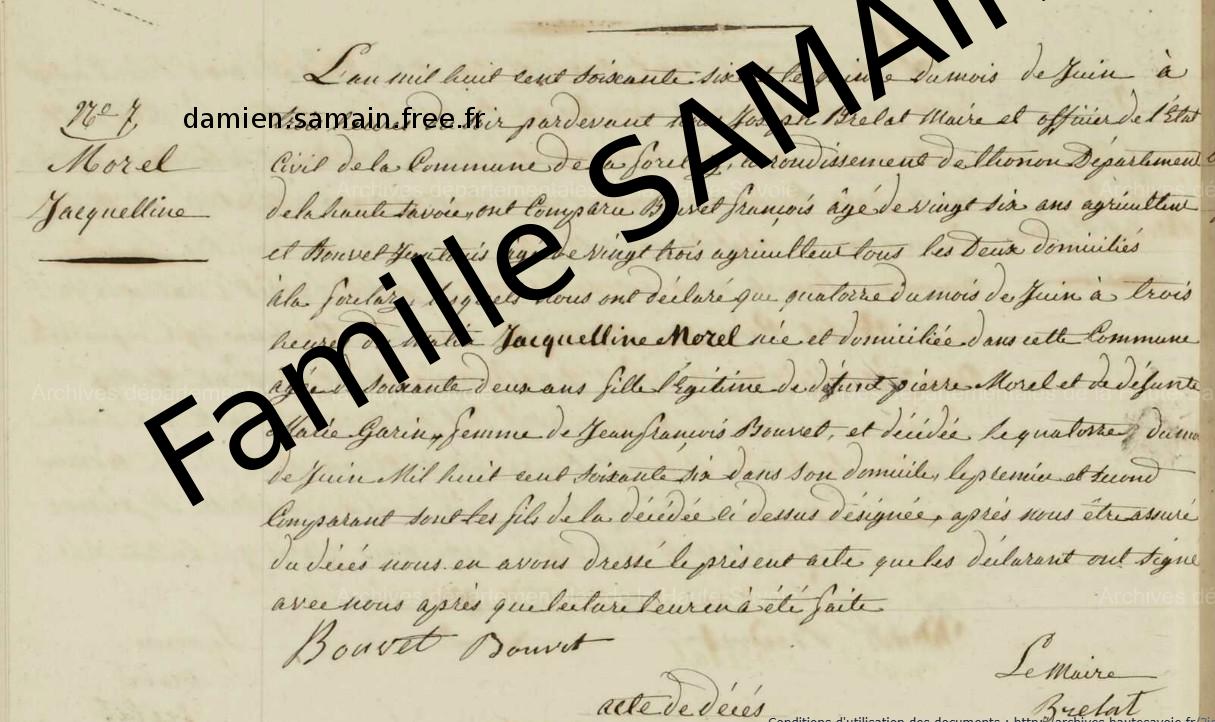 L'an mil huit cent soixante six et le quinze du mois de Juin à
damien.samain.free.fr
N° 7
heures du soir pardevant nous Joseph Brelat Maire et officier de l'Etat
Morel
Civil de la Commune de la forclaz, arrondissement de thonon Département
Jacquelline
de la haute Savoie, ont Comparu Bouvet françois âgé de vingt six ans agriculteur
et Bouvet Jean Louis âgé de vingt trois agriculteur tous les Deux domiciliés
à la forclaz, lesquels nous ont déclaré que quatorze du mois de Juin à trois
heures du matin Jacquelline Morel née et domiciliée dans cette Commune
agée de soixante deux ans fille légitime de défunt pierre Morel et de défunte
Marie Garin, femme de Jean françois Bouvet, et décédée le quatorze du mo
de Juin Mil huit cent soixante six dans son domicile, le premier et second
Comparant sont les fils de la décédée ci dessus désignée, après nous être assuré
du décés nous en avons dressé le présent acte que les déclarant ont signé
avec nous après que lecture leur en à été faite
Bouvet Bouvet
Le Maire
Brelat
acte de décés
Famille SAMAIN
Archives départementales de la Haute-Savoie
Conditions d'utilisation des documents : http://archives.hautesavoie.fr/